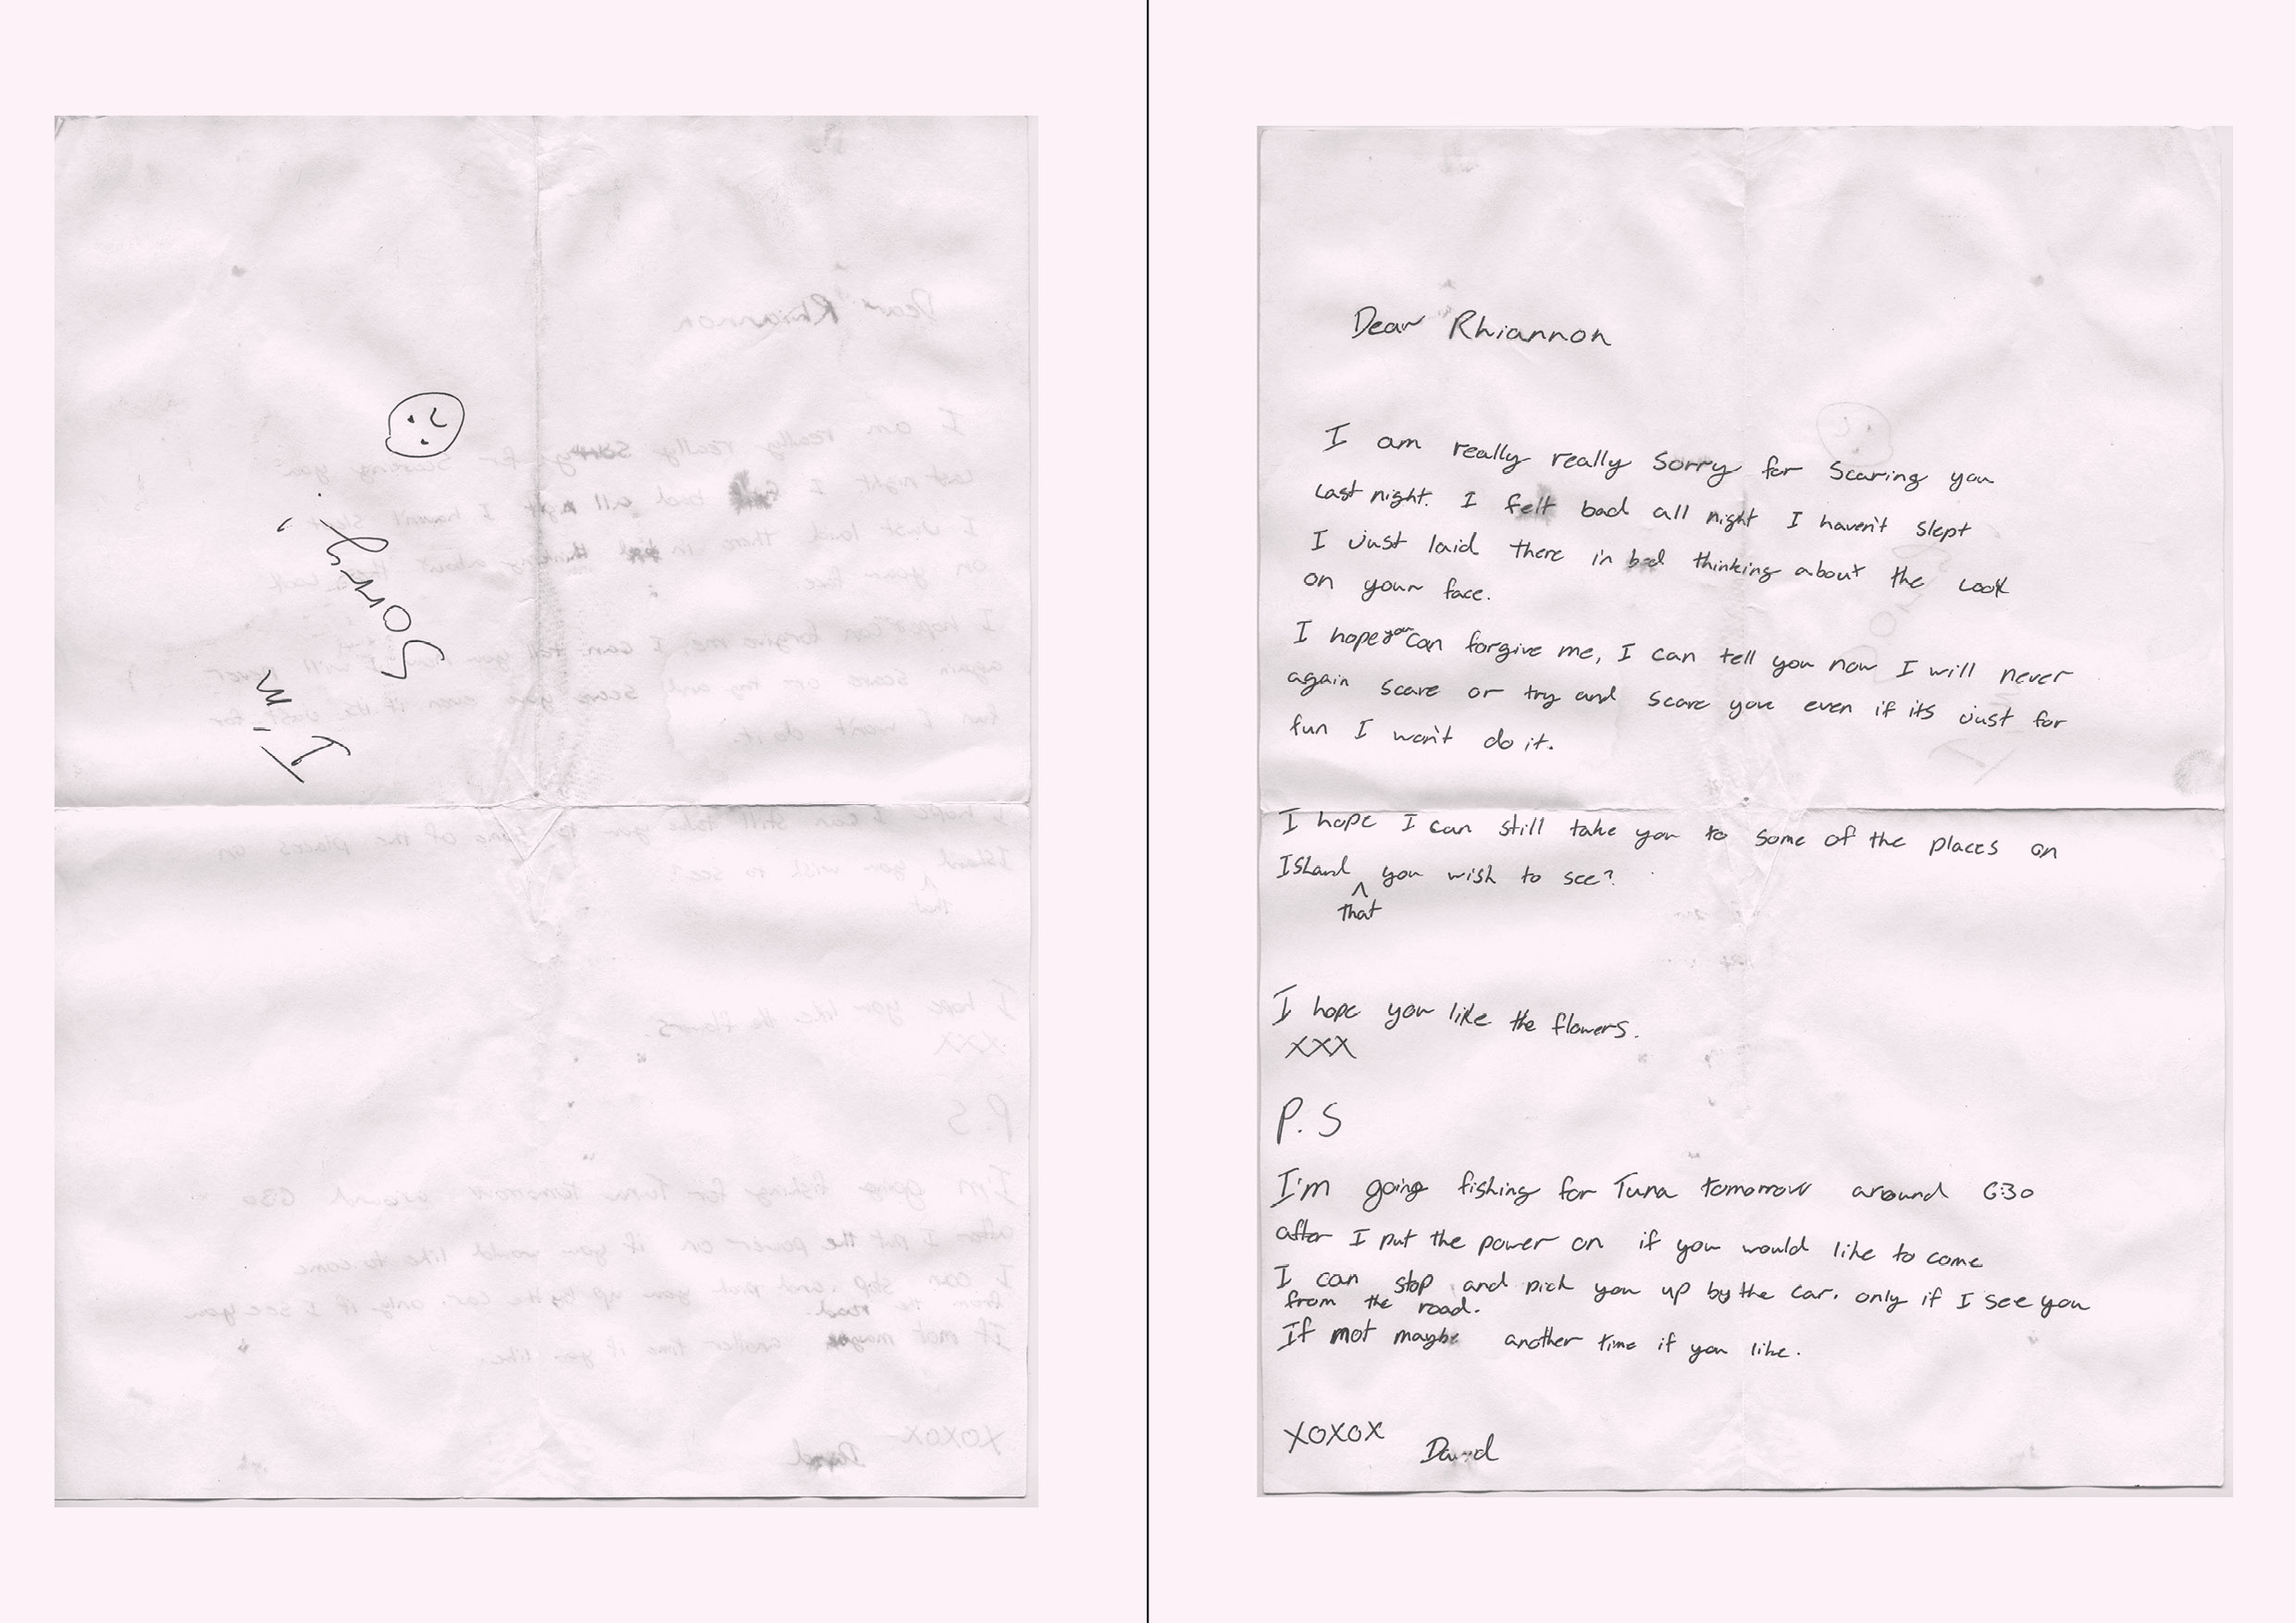 I'm
Sorry.
Dear Rhiannon
I am really really sorry for scaring you
last night. I felt bad all night I haven't slept
I just laid there in bed thinking about the look
on your face.
I hope you can forgive me, I can tell you now I will never
again scare or try and scare you even if its just for
fun I won't do it.
I hope I can still take you to some of the places on
Island ^ you wish to see?
that
I hope you like the flowers.
XXX
P.S
I'm going fishing for Tuna tomorrow around 6:30
after I put the power on if you would like to come
I can stop and pick you up by the car. only if I see you
from the road.
If not maybe another time if you like.
XOXOX David